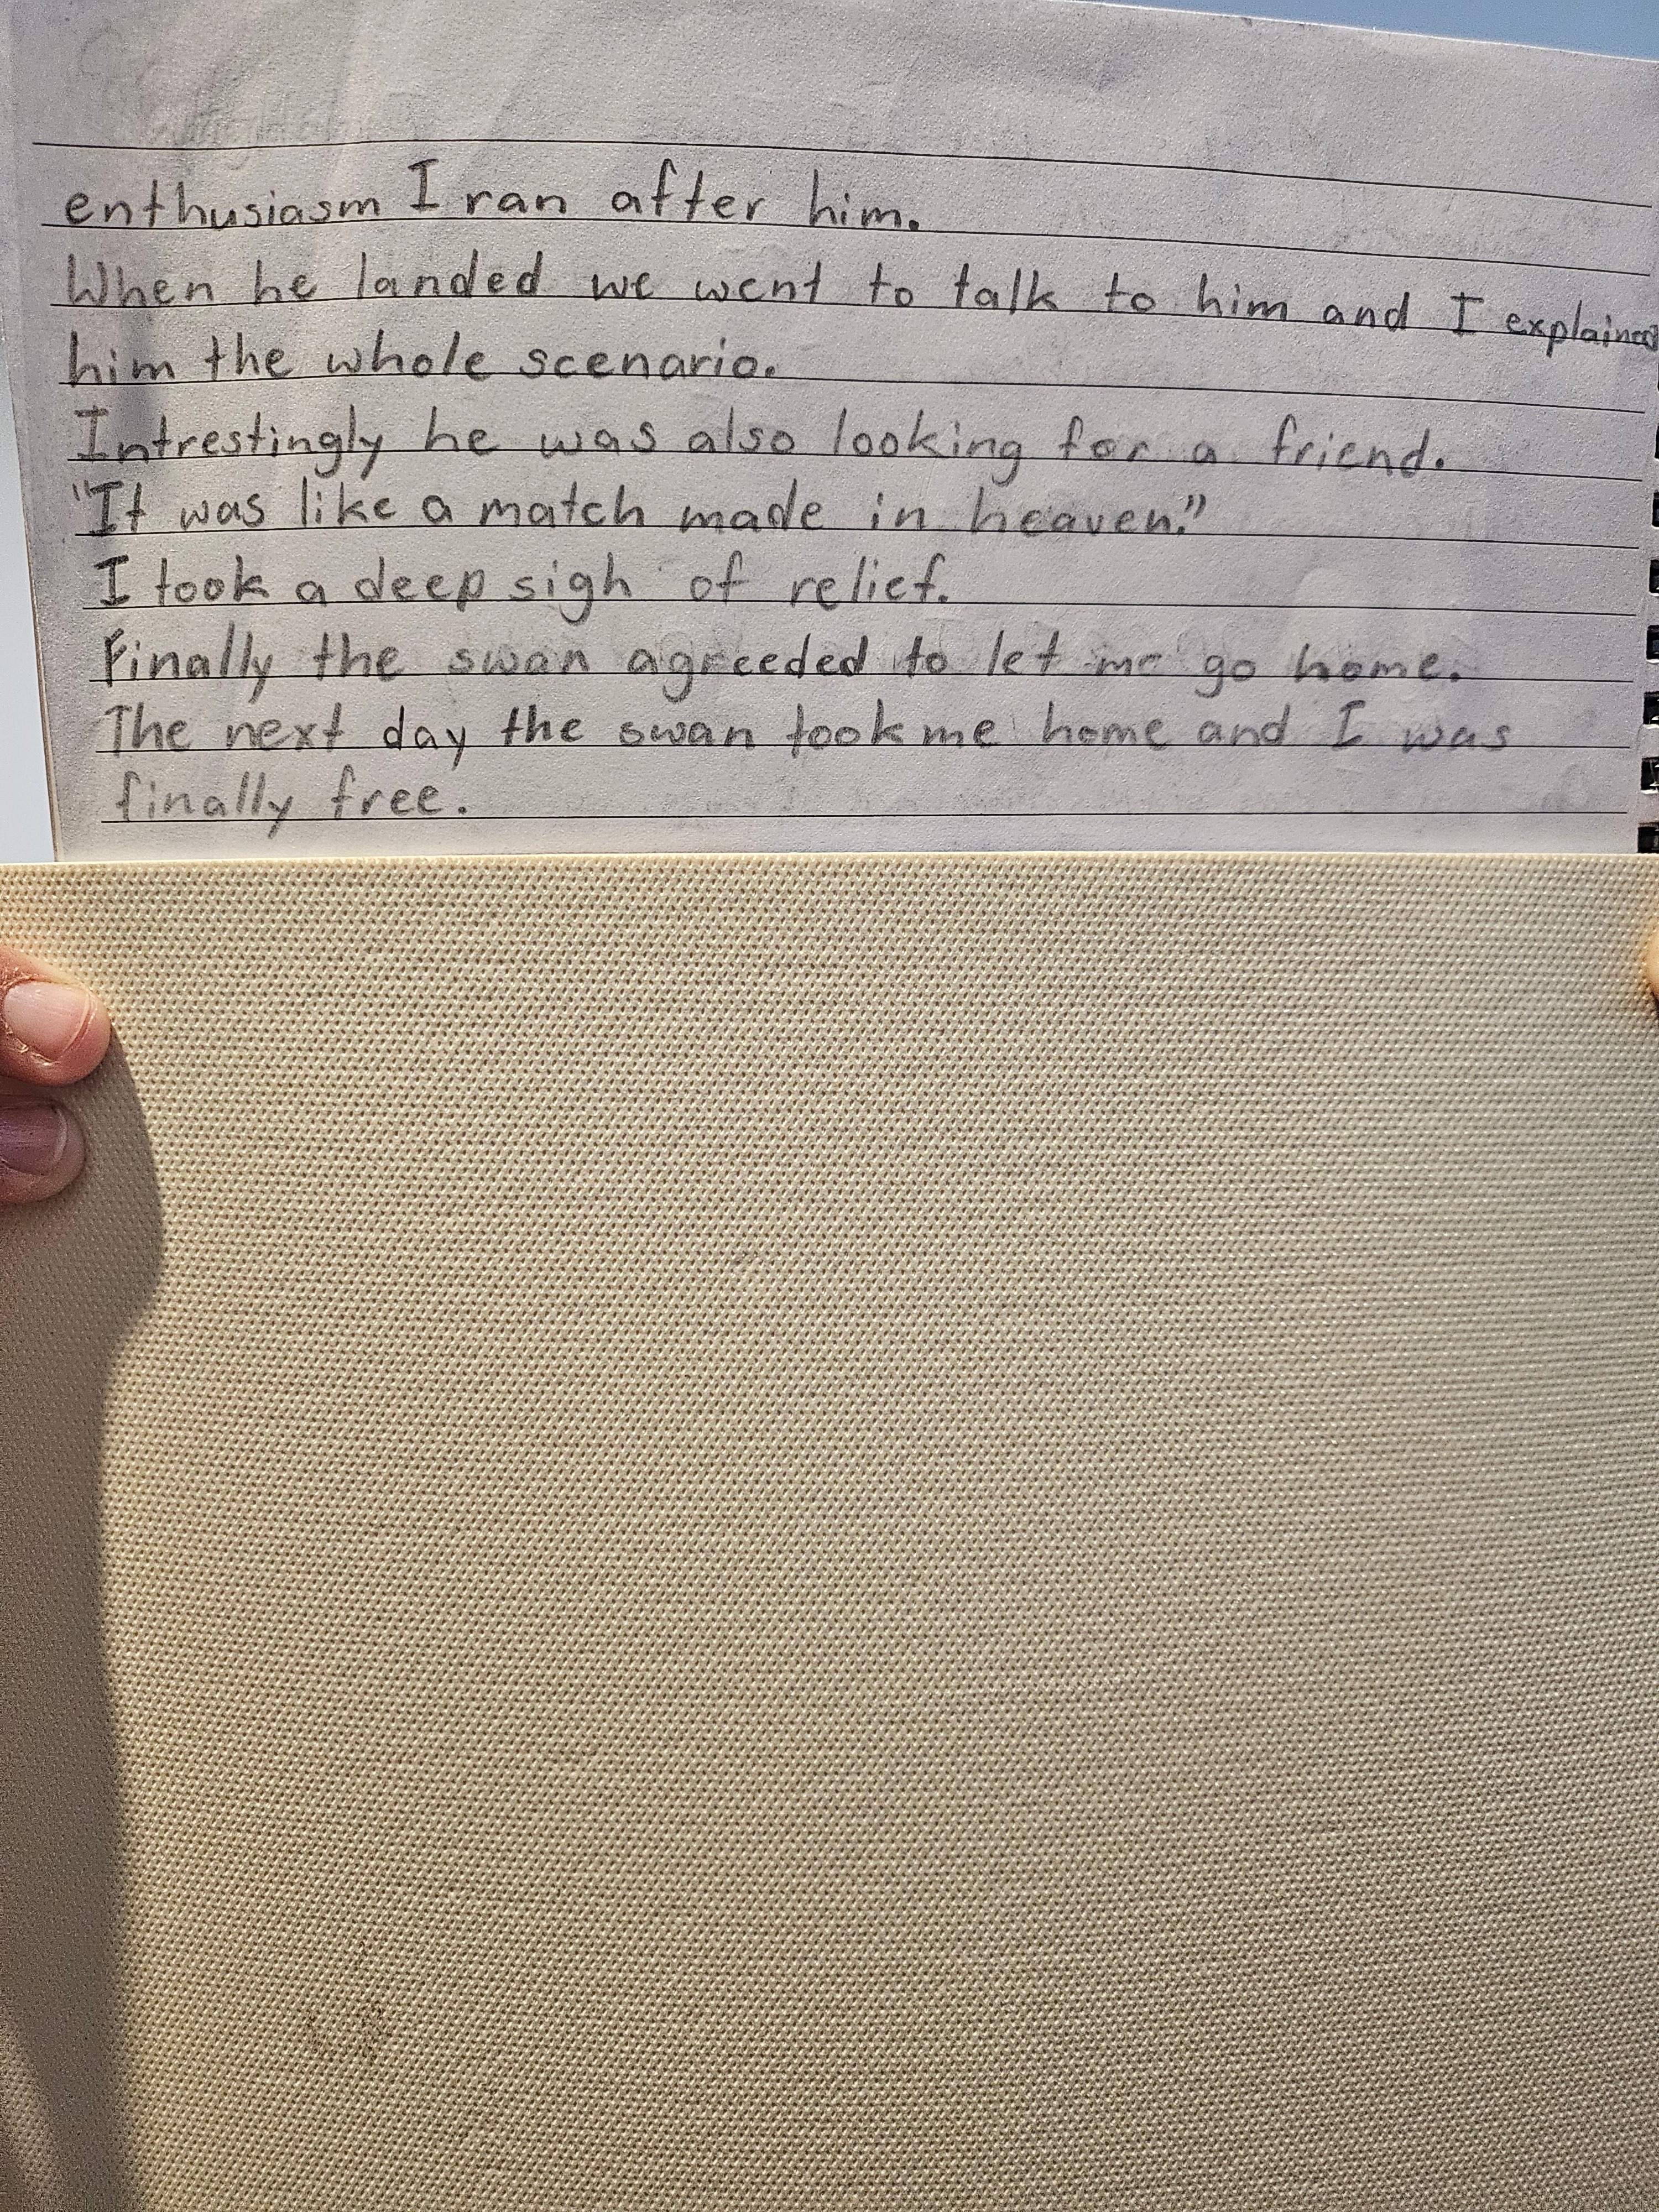 enthusiasm I ran after him.
When he landed we went to talk to him and I explained
him the whole scenario.
Intrestingly he was also looking for a friend.
"It was like a match made in heaven."
I took a deep sigh of relief.
Finally the swan agreeded to let me go home.
The next day the swan took me home and I was
finally free.